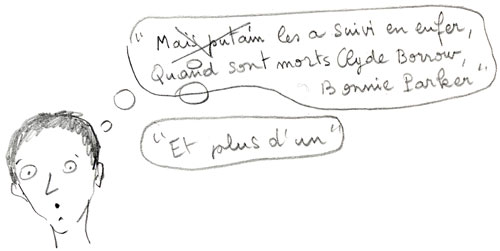 "Mais putain les a suivi en enfer,
Quand sont morts Clyde Borrow,
Bonnie Parker"
"Et plus d'un"